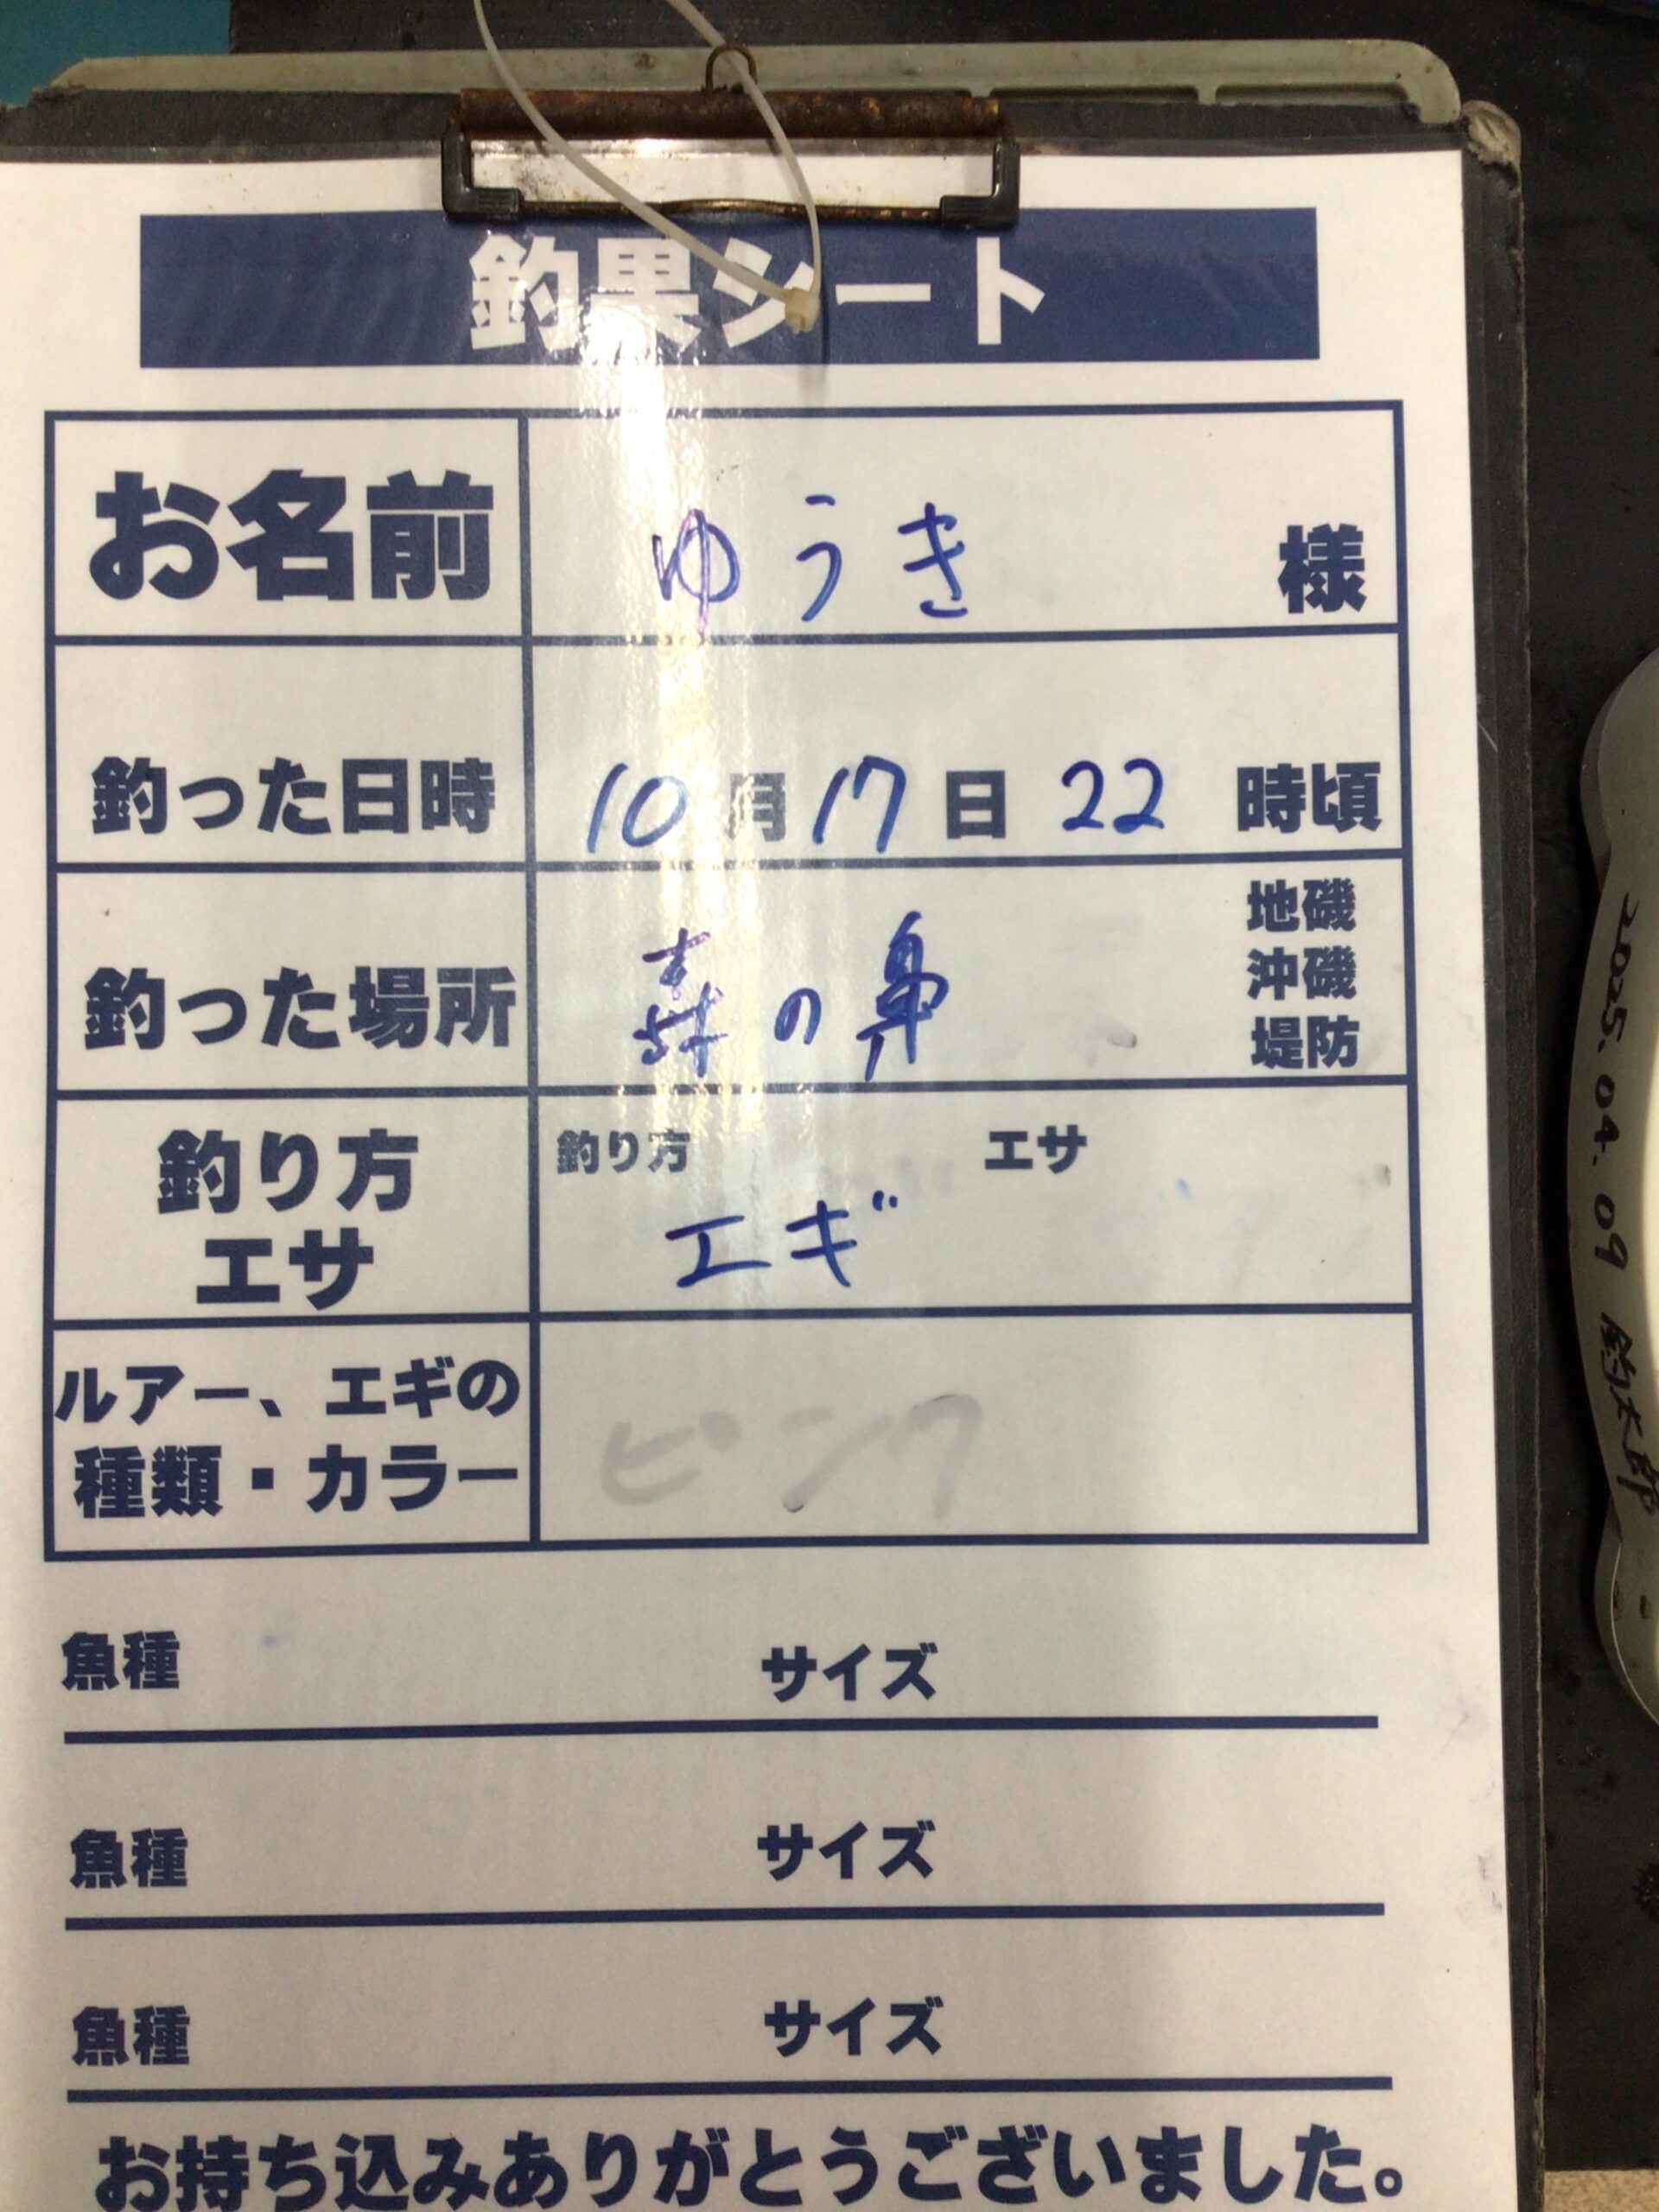 釣果シート
お名前 ゆうき 様
釣った日時 10 月 17 日 22 時頃
釣った場所 森の鼻 地磯
沖磯
堤防
釣り方
エサ
釣り方 エサ
エギ
ルアー、エギの
種類・カラー
ピンク
魚種 サイズ
魚種 サイズ
魚種 サイズ
お持ち込みありがとうございました。
2025.04.09 釣太郎